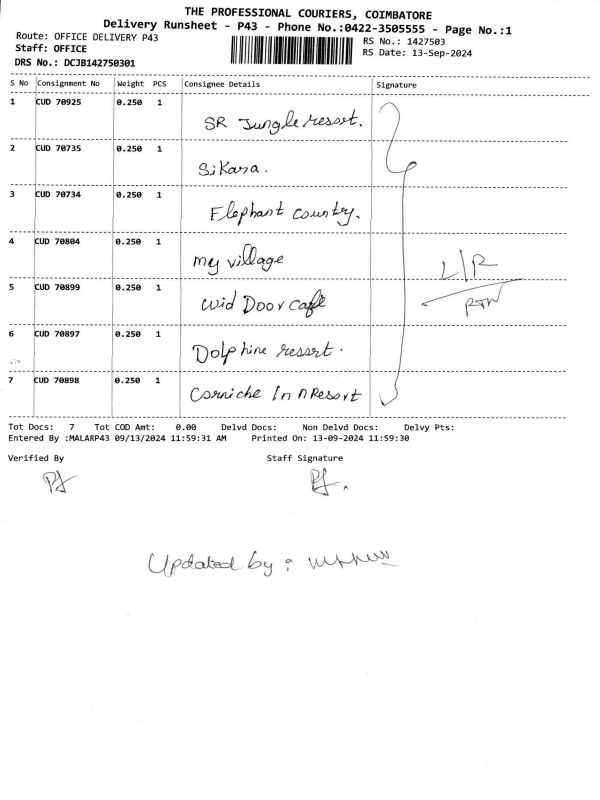 THE PROFESSIONAL COURIERS, COIMBATORE
Delivery Runsheet - P43 - Phone No.:0422-3505555 - Page No.:1
Route: OFFICE DELIVERY P43
RS No.: 1427503
Staff: OFFICE
RS Date: 13-Sep-2024
DRS No.: DCJB142750301
S No Consignment No Weight PCS Consignee Details Signature
1 CUD 70925 0.250 1 SR Jungle resort.
2 CUD 70735 0.250 1 Sikara.
3 CUD 70734 0.250 1 Elephant country.
4 CUD 70804 0.250 1 my village
5 CUD 70899 0.250 1 wid Door cafe
6 CUD 70897 0.250 1 Dolphine resort.
7 CUD 70898 0.250 1 Corniche Inn Resort
L/R
Tot Docs: 7 Tot COD Amt: 0.00 Delvd Docs: Non Delvd Docs: Delvy Pts:
Entered By :MALARP43 09/13/2024 11:59:31 AM Printed On: 13-09-2024 11:59:30
Verified By Staff Signature
Updated by :